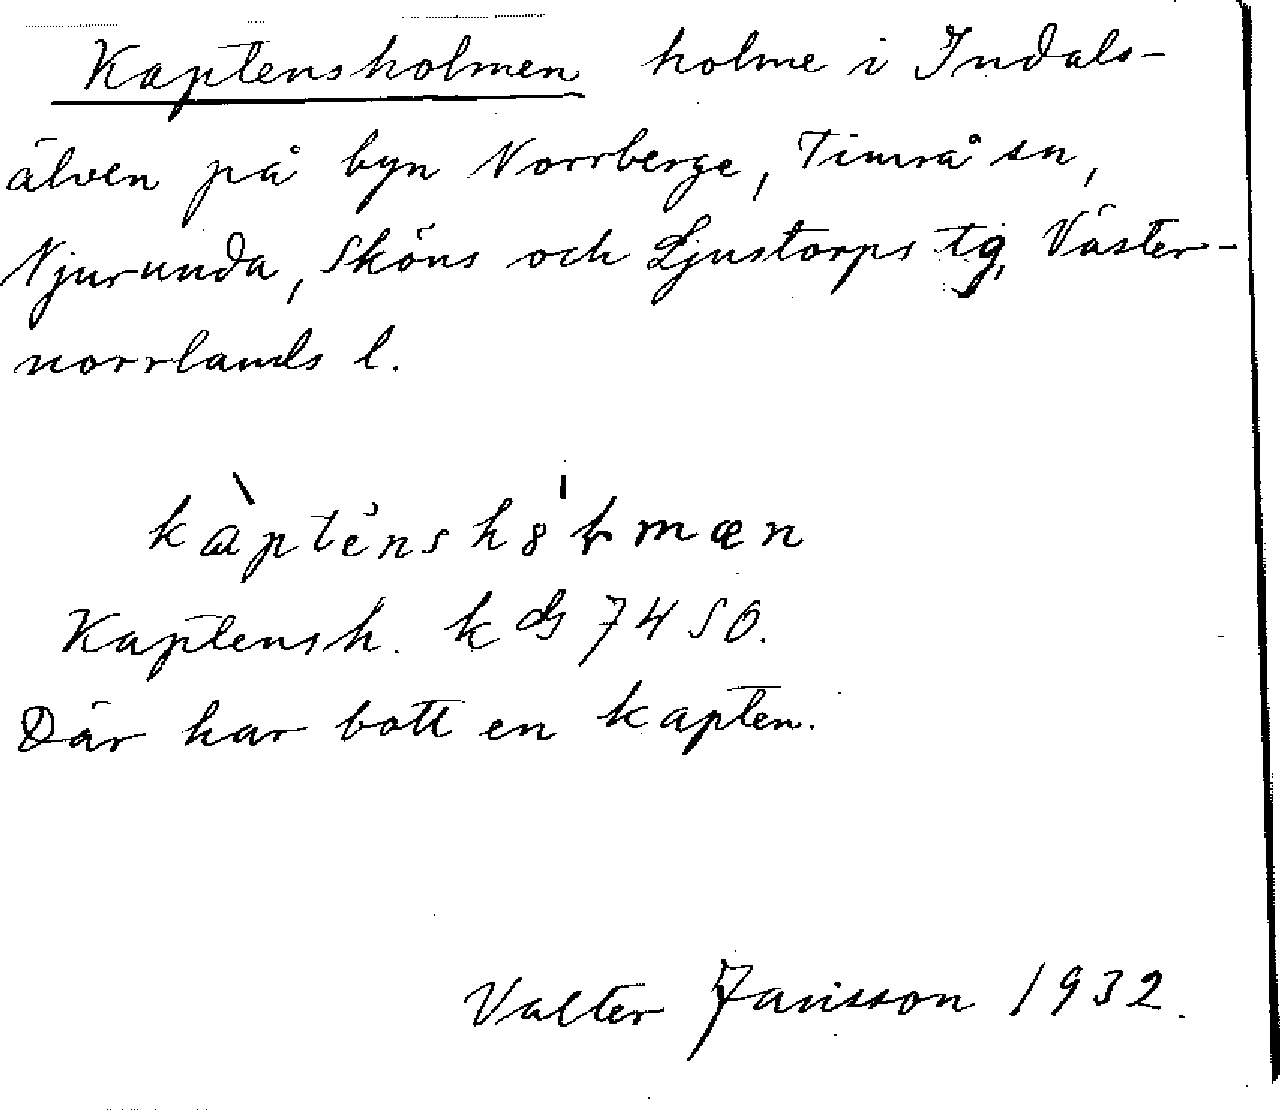 Kaptensholmen holme i Indals-
älven på byn Norrberge, Timrå sn,
Njurunda, Sköns och Ljustorps tg, Väster-
norrlands l.
Kaptensh. k
Där har bott en kapten.
Valter Jansson 1932.